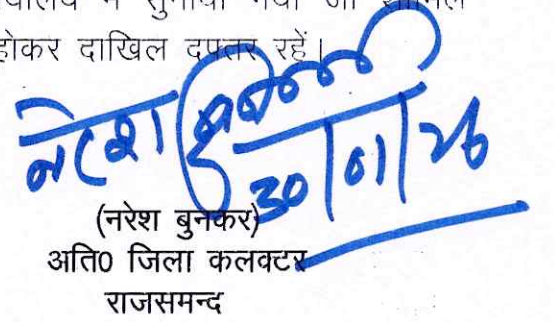 में सुनाया गया जो शामिल
होकर दाखिल दफ्तर रहें।
नरेश
30/01/26
(नरेश बुनकर)
अति0 जिला कलक्टर
राजसमन्द